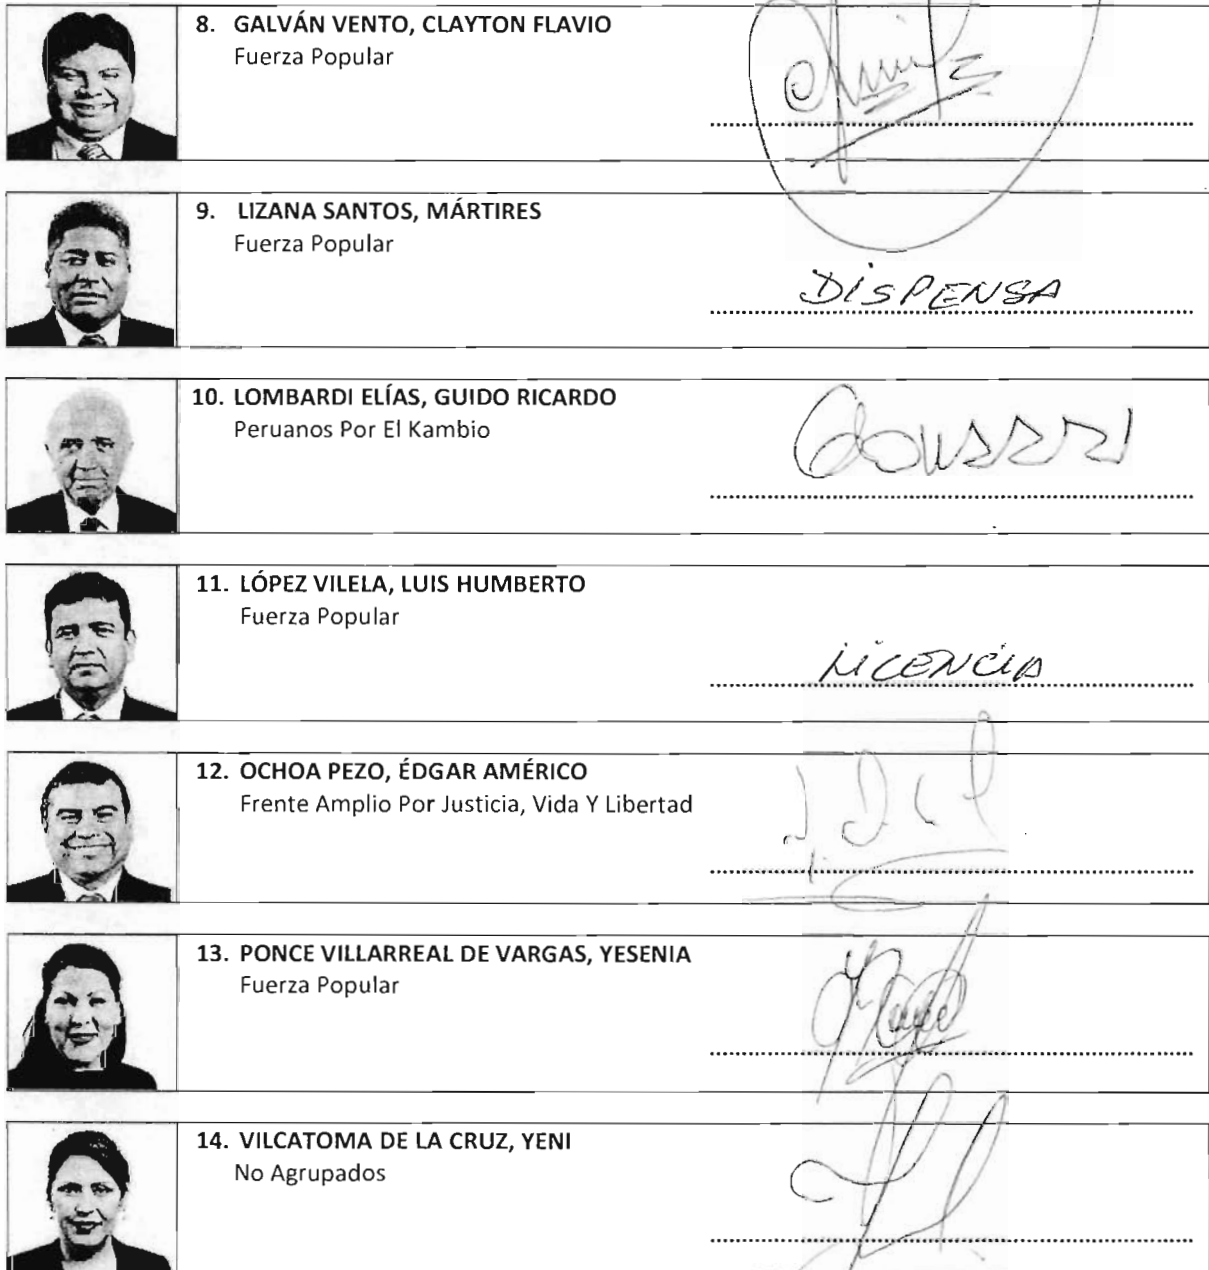 8. GALVÁN VENTO, CLAYTON FLAVIO
Fuerza Popular
9. LIZANA SANTOS, MÁRTIRES
Fuerza Popular
DISPENSA
10. LOMBARDI ELÍAS, GUIDO RICARDO
Peruanos Por El Kambio
11. LÓPEZ VILELA, LUIS HUMBERTO
Fuerza Popular
LICENCIA
12. OCHOA PEZO, ÉDGAR AMÉRICO
Frente Amplio Por Justicia, Vida Y Libertad
13. PONCE VILLARREAL DE VARGAS, YESENIA
Fuerza Popular
14. VILCATOMA DE LA CRUZ, YENI
No Agrupados